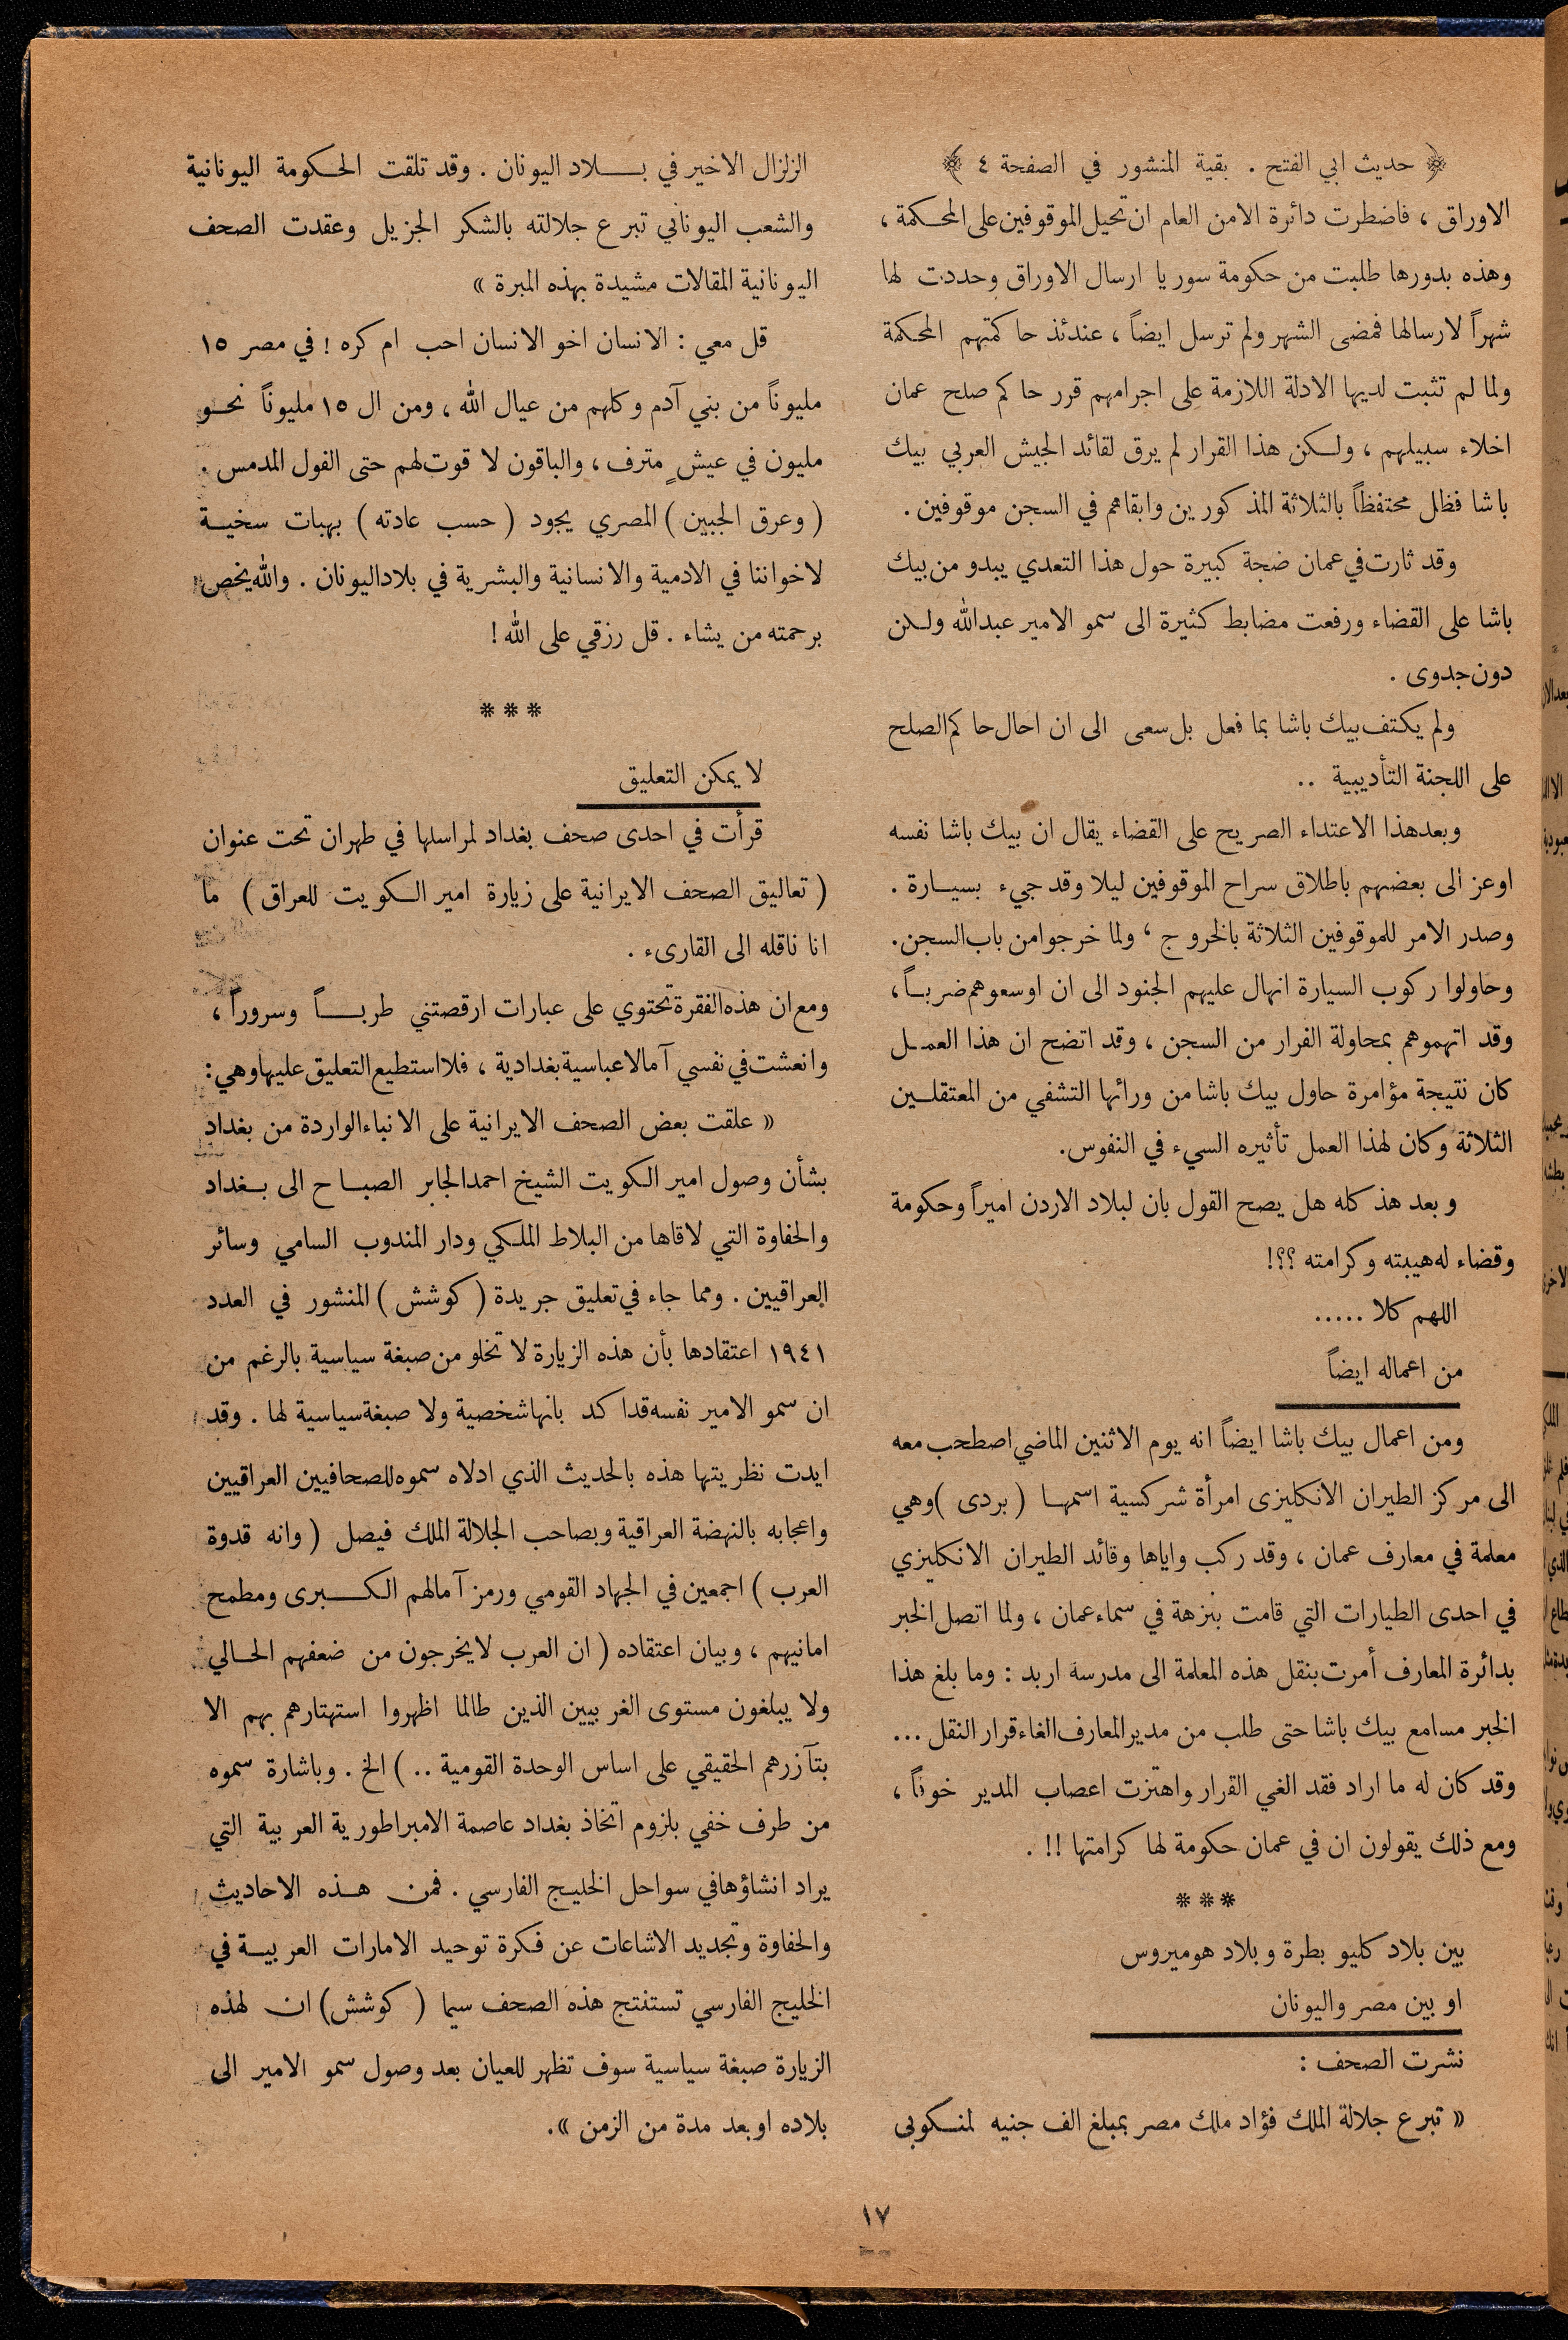 ﴿ حديث ابي الفتح . بقية المنشور في الصفحة ٤ ﴾
الاوراق ، فاضطرت دائرة الامن العام ان تحيل الموقوفين على المحكمة ،
وهذه بدورها طلبت من حكومة سوريا ارسال الاوراق وحددت لها
شهراً لارسالها فمضى الشهر ولم ترسل ايضاً ، عندئذ حاكمتهم المحكمة
ولما لم تثبت لديها الادلة اللازمة على اجرامهم قرر حاكم صلح عمان
اخلاء سبيلهم ، ولكن هذا القرار لم يرق لقائد الجيش العربي بيك
باشا فظل محتفظاً بالثلاثة المذكورين وابقاهم في السجن موقوفين .
وقد ثارت في عمان ضجة كبيرة حول هذا التعدي يبدو من بيك
باشا على القضاء ورفعت مضابط كثيرة الى سمو الامير عبدالله ولكن
دون جدوى .
ولم يكتف بيك باشا بما فعل بل سعى الى ان احال حاكم الصلح
على اللجنة التأديبية ..
وبعد هذا الاعتداء الصريح على القضاء يقال ان بيك باشا نفسه
اوعز الى بعضهم باطلاق سراح الموقوفين ليلا وقد جيء بسيارة .
وصدر الامر للموقوفين الثلاثة بالخروج ، ولما خرجوا من باب السجن .
وحاولوا ركوب السيارة انهال عليهم الجنود الى ان اوسعوهم ضرباً ،
وقد اتهموهم بمحاولة الفرار من السجن ، وقد اتضح ان هذا العمل
كان نتيجة مؤامرة حاول بيك باشا من ورائها التشفي من المعتقلين
الثلاثة وكان لهذا العمل تأثيره السيء في النفوس.
وبعد هذ كله هل يصح القول بان لبلاد الاردن اميراً وحكومة
وقضاء له هيبته وكرامته ؟؟!
اللهم كلا .....
من اعماله ايضاً
ومن اعمال بيك باشا ايضاً انه يوم الاثنين الماضي اصطحب معه
الى مركز الطيران الانكليزى امرأة شركسية اسمها ( بردى ) وهي
معلمة في معارف عمان ، وقد ركب واياها وقائد الطيران الانكليزي
في احدى الطيارات التي قامت بنزهة في سماء عمان ، ولما اتصل الخبر
بدائرة المعارف أمرت بنقل هذه المعلمة الى مدرسة اربد : وما بلغ هذا
الخبر مسامع بيك باشا حتى طلب من مدير المعارف الغاء قرار النقل ...
وقد كان له ما اراد فقد الغي القرار واهتزت اعصاب المدير خوفاً ،
ومع ذلك يقولون ان في عمان حكومة لها كرامتها !! .
***
بين بلاد كليو بطرة وبلاد هوميروس
او بين مصر واليونان
نشرت الصحف :
« تبرع جلالة الملك فؤاد ملك مصر بمبلغ الف جنيه لمنكوبى
الزلزال الاخير في بلاد اليونان . وقد تلقت الحكومة اليونانية
والشعب اليوناني تبرع جلالته بالشكر الجزيل وعقدت الصحف
اليونانية المقالات مشيدة بهذه المبرة »
قل معي : الانسان اخو الانسان احب ام كره ! في مصر ١٥
مليوناً من بني آدم وكلهم من عيال الله ، ومن ال ١٥ مليوناً نحو
مليون في عيشٍ مترف ، والباقون لا قوت لهم حتى الفول المدمس .
( وعرق الجبين ) المصري يجود ( حسب عادته ) بهبات سخية
لاخواننا في الادمية والانسانية والبشرية في بلاد اليونان . والله يخص
برحمته من يشاء . قل رزقي على الله !
***
لا يمكن التعليق
قرأت في احدى صحف بغداد لمراسلها في طهران تحت عنوان
( تعاليق الصحف الايرانية على زيارة امير الكويت للعراق ) ما
انا ناقله الى القارىء .
ومع ان هذه الفقرة تحتوي على عبارات ارقصتني طرباً وسروراً ،
وانعشت في نفسي آمالا عباسية بغدادية ، فلا استطيع التعليق عليها وهي :
« علقت بعض الصحف الايرانية على الانباء الواردة من بغداد
بشأن وصول امير الكويت الشيخ احمد الجابر الصباح الى بغداد
والحفاوة التي لاقاها من البلاط الملكي ودار المندوب السامي وسائر
العراقيين . ومما جاء في تعليق جريدة ( كوشش ) المنشور في العدد
١٩٤١ اعتقادها بأن هذه الزيارة لا تخلو من صبغة سياسية بالرغم من
ان سمو الامير نفسه قد اكد بانها شخصية ولا صبغة سياسية لها . وقد
ايدت نظريتها هذه بالحديث الذي ادلاه سموه للصحافيين العراقيين
واعجابه بالنهضة العراقية وبصاحب الجلالة الملك فيصل ( وانه قدوة
العرب ) اجمعين في الجهاد القومي ورمز آمالهم الكبرى ومطمح
امانيهم ، وبيان اعتقاده ( ان العرب لا يخرجون من ضعفهم الحالي
ولا يبلغون مستوى الغربيين الذين طالما اظهروا استهتارهم بهم الا
بتآزرهم الحقيقي على اساس الوحدة القومية .. ) الخ . وباشارة سموه
من طرف خفي بلزوم اتخاذ بغداد عاصمة الامبراطورية العربية التي
يراد انشاؤها في سواحل الخليج الفارسي . فمن هذه الاحاديث
والحفاوة وتجديد الاشاعات عن فكرة توحيد الامارات العربية في
الخليج الفارسي تستنتج هذه الصحف سيما ( كوشش ) ان لهذه
الزيارة صبغة سياسية سوف تظهر للعيان بعد وصول سمو الامير الى
بلاده او بعد مدة من الزمن ».
١٧